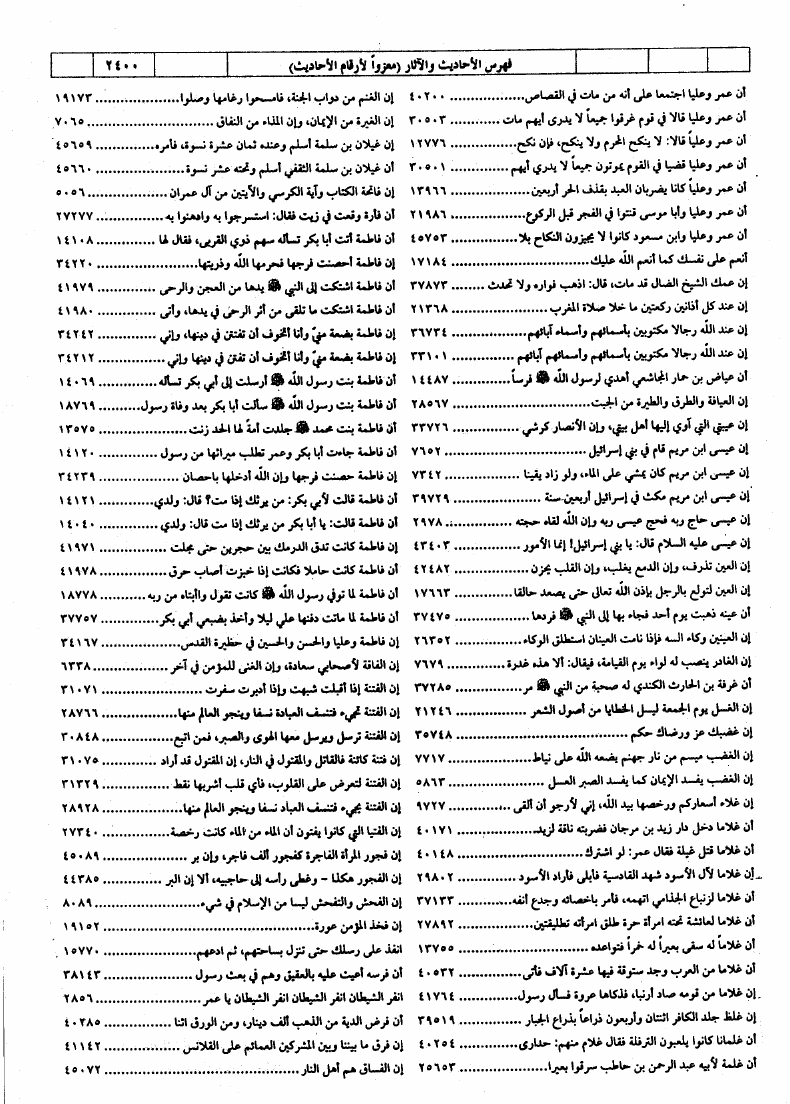 فهرس الأحاديث والآثار (معزواً لأرقام الأحاديث)
٢٤٠٠
أن عمر وعليا اجتمعا على أنه من مات في القصاص ٤٠٢٠٠
أن عمر وعليا قالا في قوم غرقوا جميعاً لا يدرى أيهم مات ٣٠٥٠٣
أن عمر وعلياً قالا: لا ينكح المحرم ولا ينكح، فإن نكح ١٢٧٧٦
أن عمر وعليا قضيا في القوم يموتون جميعاً لا يدري أيهم ٣٠٥٠١
أن عمر وعلياً كانا يضربان العبد بقذف الحر أربعين ١٣٩٦٦
أن عمر وعليا وأبا موسى قنتوا في الفجر قبل الركوع ٢١٩٨٦
أن عمر وعليا وابن مسعود كانوا لا يجيزون النكاح بلا ٤٥٧٥٣
أنعم على نفسك كما أنعم الله عليك ١٧١٨٤
إن عمك الشيخ الضال قد مات، قال: اذهب فواره ولا تحدث ٣٧٨٧٣
إن عند كل أذانين ركعتين ما خلا صلاة المغرب ٢١٣٦٨
إن عند الله رجالا مكتوبين بأسمائهم وأسماء آبائهم ٣٦٧٣٤
إن عند الله رجالا مكتوبين بأسمائهم وأسمائهم آبائهم ٣٣١٠١
أن عياض بن حمار المجاشمي أهدي لرسول الله ﷺ فرساً ١٤٤٨٧
إن العيافة والطرق والطيرة من الجبت ٢٨٥٦٧
إن عيبتي التي آوي إليها أهل بيتي، وإن الأنصار كرشي ٣٣٧٢٦
إن عيسى ابن مريم قام في بني إسرائيل ٧٦٥٢
إن عيسى ابن مريم كان يمشي على الماء، ولو زاد يقينا ٧٣٤٢
إن عيسى ابن مريم مكث في إسرائيل أربعين سنة ٣٩٧٢٩
إن عيسى حاج ربه فحج عيسى ربه وإن الله لقاه حجته ٢٩٧٨
إن عيسى عليه السلام قال: يا بني إسرائيل! إنما الأمور ٤٣٤٠٣
إن العين تذرف، وإن الدمع يغلب، وإن القلب يحزن ٤٢٤٨٢
إن العين لتولع بالرجل بإذن الله تعالى حتى يصعد حالقا ١٧٦٦٣
أن عينه ذهبت يوم أحد فجاء بها إلى النبي ﷺ فردها ٣٧٤٧٥
إن العينين وكاء السه فإذا نامت العينان استطلق الوكاء ٢٦٣٥٢
إن الغادر ينصب له لواء يوم القيامة، فيقال: ألا هذه غدرة ٧٦٧٩
أن غرفة بن الحارث الكندي له صحبة من النبي ﷺ مر ٣٧٢٨٥
إن الغسل يوم الجمعة ليسل الخطايا من أصول الشعر ٢١٢٤٦
إن غضبك عز ورضاك حكم ٣٥٧٤٨
إن الغضب ميسم من نار جهنم يضعه الله على نياط ٧٧١٧
إن الغضب يفسد الإيمان كما يفسد الصبر العسل ٥٨٦٣
إن غلاء أسعاركم ورخصها بيد الله، إني لأرجو أن ألقى ٩٧٢٧
أن غلاما دخل دار زيد بن مرجان فضربته ناقة لزيد ٤٠١٧١
أن غلاما قتل غيلة فقال عمر: لو اشترك ٤٠١٤٨
إن غلاما لآل الأسود شهد القادسية فأبلى فأراد الأسود ٢٩٨٠٢
أن غلاما لزنباع الجذامي اتهمه، فأمر باخصائه وجدع أنفه ٣٧١٣٣
أن غلاما لعائشة تحته امرأة حرة طلق امرأته تطليقتين ٢٧٨٩٢
أن غلاماً له سقى بعيراً له خمراً فتواعده ١٣٧٥٥
أن غلاما من العرب وجد ستوقة فيها عشرة آلاف فأتى ٤٠٥٣٢
إن غلاما من قومه صاد أرنبا، فذكاها عروة فسأل رسول ٤١٧٦٤
إن غلظ جلد الكافر اثنتان وأربعون ذراعاً بذراع الجبار ٣٩٥١٩
أن غلمانا كانوا يلعبون الترفلة فقال غلام منهم: حدارى ٤٠٢٥٤
أن غلمة لأبيه عبد الرحمن بن حاطب سرقوا بعيرا ٢٥٦٥٣
إن الغنم من دواب الجنة، فامسحوا رغامها وصلوا ١٩١٧٣
إن الغيرة من الإيمان، وإن المذاء من النفاق ٧٠٦٥
أن غيلان بن سلمة أسلم وعنده ثمان عشرة نسوة، فأمره ٤٥٦٥٩
أن غيلان بن سلمة الثقفي أسلم وتحته عشر نسوة ٤٥٦٦٠
إن فاتحة الكتاب وآية الكرسي والآيتين من آل عمران ٥٠٥٦
أن فأرة وقعت في زيت فقال: استسرجوا به وادهنوا به ٢٧٢٧٧
أن فاطمة أتت أبا بكر تسأله سهم ذوي القربى، فقال لها ١٤١٠٨
إن فاطمة أحصنت فرجها فحرمها الله وذريتها ٣٤٢٢٠
أن فاطمة اشتكت إلى النبي ﷺ يدها من العجن والرحى ٤١٩٧٩
أن فاطمة اشتكت ما تلقى من أثر الرحى في يدها، وأتى ٤١٩٨٠
إن فاطمة بضعة منيّ وأنا أتخوف أن تفتتن في دينها، وإني ٣٤٢٤٢
إن فاطمة بضعة منيّ وأنا أتخوف أن تفتن في دينها وإني ٣٤٢١٢
أن فاطمة بنت رسول الله ﷺ أرسلت إلى أبي بكر تسأله ١٤٠٦٩
أن فاطمة بنت رسول الله ﷺ سألت أبا بكر بعد وفاة رسول ١٨٧٦٩
أن فاطمة بنت محمد ﷺ جلدت أمةً لها الحد زنت ١٣٥٧٥
أن فاطمة جاءت أبا بكر وعمر تطلب ميراثها من رسول ١٤١٢٠
إن فاطمة حصنت فرجها وإن الله أدخلها باحصان ٣٤٢٣٩
أن فاطمة قالت لأبي بكر: من يرثك إذا مت؟ قال: ولدي ١٤١٢١
أن فاطمة قالت: يا أبا بكر من يرثك إذا مت قال: ولدي ١٤٠٤٠
أن فاطمة كانت تدق الدرمك بين حجرين حتى مجلت ٤١٩٧١
أن فاطمة كانت حاملا فكانت إذا خبزت أصاب حرق ٤١٩٧٨
أن فاطمة لما توفي رسول الله ﷺ كانت تقول وا أبتاه من ربه ١٨٧٧٨
أن فاطمة لما ماتت دفنها علي ليلا وأخذ بضبعي أبي بكر ٣٧٧٥٧
إن فاطمة وعليا والحسن والحسين في حظيرة القدس ٣٤١٦٧
إن الفاقة لأصحابي سعادة، وإن الغنى للمؤمن في آخر ٦٣٣٨
إن الفتنة إذا أقبلت شبهت وإذا أدبرت سفرت ٣١٠٧١
إن الفتنة تجيء فتنسف العبادة نسفا وينجو العالم منها ٢٨٧٦٦
إن الفتنة ترسل ويرسل معها الهوى والصبر، فمن اتبع ٣٠٨٤٨
إن فتنة كائنة فالقاتل والمقتول في النار، إن المقتول قد أراد ٣١٠٧٥
إن الفتنة لتعرض على القلوب، فأي قلب أشربها نقط ٣١٣٢٩
إن الفتنة يجيء فتنسف العباد نسفا وينجو العالم منها ٢٨٩٢٨
إن الفتيا التي كانوا يفتون أن الماء من الماء كانت رخصة ٢٧٣٤٠
إن فجور المرأة الفاجرة كفجور ألف فاجر، وإن بر ٤٥٠٨٩
إن الفجور هكذا - وغطى رأسه إلى حاجبيه، ألا إن البر ٤٤٣٨٥
إن الفحش والتفحش ليسا من الإسلام في شيء ٨٠٨٩
إن فخذ المؤمن عورة ١٩١٥٢
انفذ على رسلك حتى تنزل بساحتهم، ثم ادعهم ١٥٧٧٠
أن فرسه أعيت عليه بالعقيق وهم في بعث رسول ٣٨١٤٣
انفر الشيطان انفر الشيطان انفر الشيطان يا عمر ٢٨٥٦
أن فرض الدية من الذهب ألف دينار، ومن الورق اثنا ٤٠٣٨٥
إن فرق ما بيننا وبين المشركين العمائم على القلانس ٤١١٤٢
إن الفساق هم أهل النار ٤٥٠٧٢